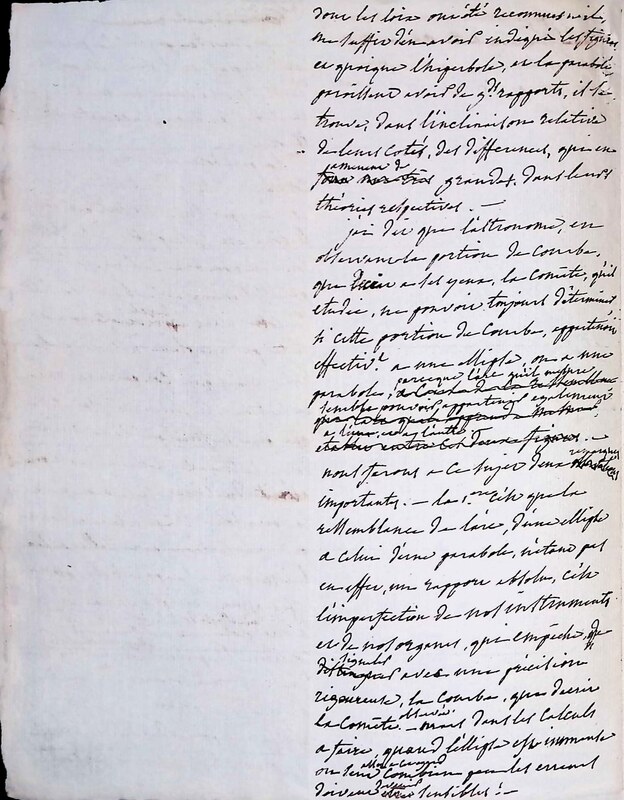 dont les loix ont été reconnues
me suffit d'en avoir indiqué les figures
et quoique l'hiperbole, et la parabole
paroissent avoir de gds rapports, il se
trouve, dans l'inclinaison relative
de leurs cotés, des differences, qui en
amenent de
grandes, dans leurs
théories respectives. —
j'ai dit que l'astronome, en
observant la portion de courbe,
que trace a ses yeux, la Comète, qu'il
etudie, ne pouvoit toujours déterminer
si cette portion de Courbe, appartenoit
effectivt a une ellipse, ou a une
parabole, parceque l'arc qu'il mesure
semble pouvoir appartenir egalement
a l'une, et a l'autre
entre ces deux figures. —
nous ferons a ce sujet deux remarques
importantes. — la 1ere c'est que la
ressemblance de l'arc, d'une ellipse
a celui d'une parabole, n'étant pas
en effet, un rapport absolu, c'est
l'imperfection de nos instruments
et de nos organes, qui empêche, de
signaler avec une précision
rigoureuse, la Courbe, que décrit
la Comète observée. — mais dans les calculs
a faire, quand l'ellipse est immense
on sent combien peu les erreurs
doivent être sensibles! —